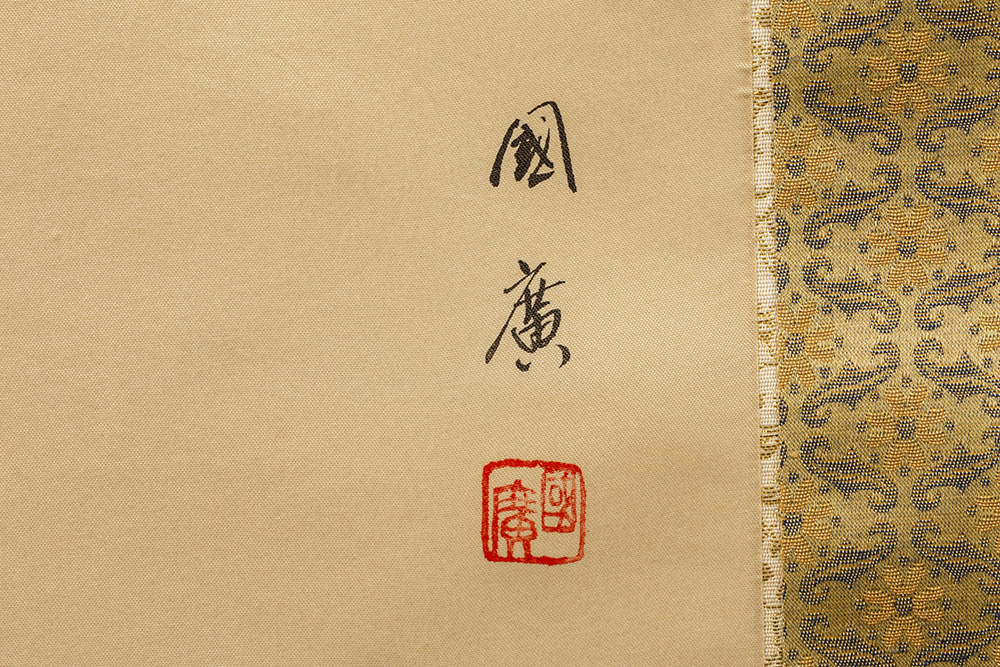 國廣
國廣